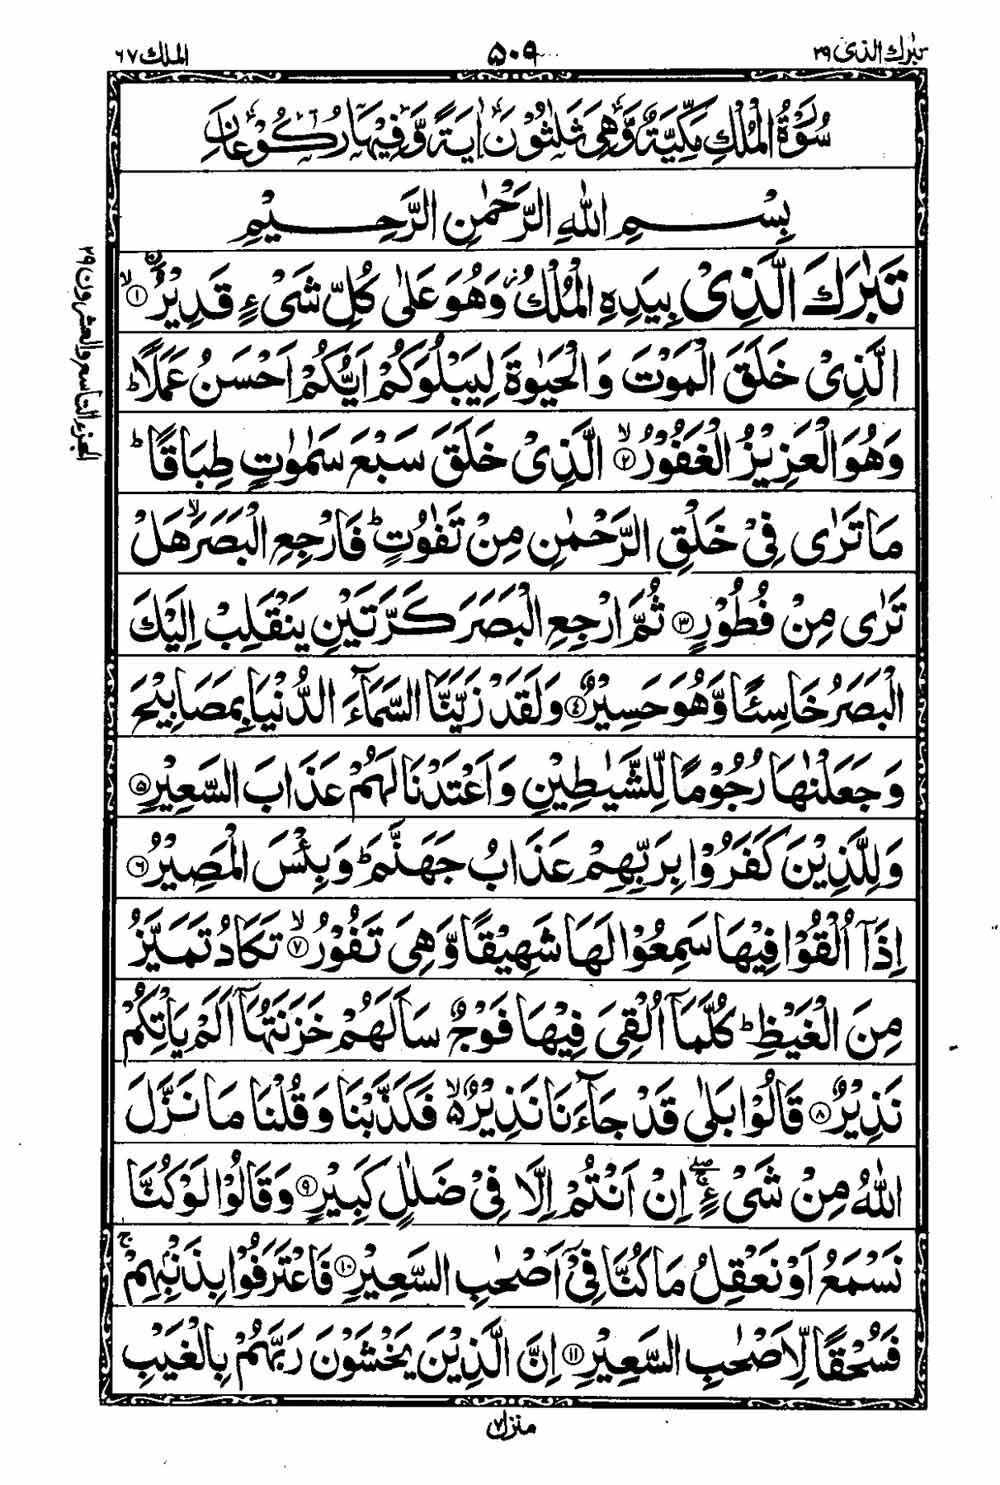 تبٰرك الذی ٢٩
٥٠٩
الملك ٦٧
سُوْرَةُ الْمُلْكِ مَكِّيَّةٌ وَّهِیَ ثَلٰثُوْنَ اٰيَةً وَّفِيْهَا رُكُوْعَانِ
بِسْمِ اللّٰهِ الرَّحْمٰنِ الرَّحِيْمِ
تَبٰرَكَ الَّذِیْ بِيَدِهِ الْمُلْكُ ز وَهُوَ عَلٰی كُلِّ شَیْءٍ قَدِيْرُ ۙ﴿١﴾
الَّذِیْ خَلَقَ الْمَوْتَ وَ الْحَيٰوةَ لِيَبْلُوَكُمْ اَيُّكُمْ اَحْسَنُ عَمَلًا ؕ
وَهُوَ الْعَزِيْزُ الْغَفُوْرُ ۙ﴿٢﴾ الَّذِیْ خَلَقَ سَبْعَ سَمٰوٰتٍ طِبَاقًا ؕ
مَا تَرٰی فِیْ خَلْقِ الرَّحْمٰنِ مِنْ تَفٰوُتٍ ؕ فَارْجِعِ الْبَصَرَ ۙ هَلْ
تَرٰی مِنْ فُطُوْرٍ ﴿٣﴾ ثُمَّ ارْجِعِ الْبَصَرَ كَرَّتَيْنِ يَنْقَلِبْ اِلَيْكَ
الْبَصَرُ خَاسِئًا وَّهُوَ حَسِيْرٌ ﴿٤﴾ وَلَقَدْ زَيَّنَّا السَّمَآءَ الدُّنْيَا بِمَصَابِيْحَ
وَجَعَلْنٰهَا رُجُوْمًا لِّلشَّيٰطِيْنِ وَاَعْتَدْنَا لَهُمْ عَذَابَ السَّعِيْرِ ﴿٥﴾
وَلِلَّذِيْنَ كَفَرُوْا بِرَبِّهِمْ عَذَابُ جَهَنَّمَ ؕ وَبِئْسَ الْمَصِيْرُ ﴿٦﴾
اِذَاۤ اُلْقُوْا فِيْهَا سَمِعُوْا لَهَا شَهِيْقًا وَّهِیَ تَفُوْرُ ۙ﴿٧﴾ تَكَادُ تَمَيَّزُ
مِنَ الْغَيْظِ ؕ كُلَّمَاۤ اُلْقِیَ فِيْهَا فَوْجٌ سَاَلَهُمْ خَزَنَتُهَاۤ اَلَمْ يَاْتِكُمْ
نَذِيْرٌ ﴿٨﴾ قَالُوْا بَلٰی قَدْ جَآءَنَا نَذِيْرٌ ۙ۵ فَكَذَّبْنَا وَقُلْنَا مَا نَزَّلَ
اللّٰهُ مِنْ شَیْءٍ ۚۖ اِنْ اَنْتُمْ اِلَّا فِیْ ضَلٰلٍ كَبِيْرٍ ﴿٩﴾ وَقَالُوْا لَوْ كُنَّا
نَسْمَعُ اَوْ نَعْقِلُ مَا كُنَّا فِیْۤ اَصْحٰبِ السَّعِيْرِ ﴿١٠﴾ فَاعْتَرَفُوْا بِذَنْۢبِهِمْ ۚ
فَسُحْقًا لِّاَصْحٰبِ السَّعِيْرِ ﴿١١﴾ اِنَّ الَّذِيْنَ يَخْشَوْنَ رَبَّهُمْ بِالْغَيْبِ
الجزء التاسع والعشرون ٢٩
منزل ٧